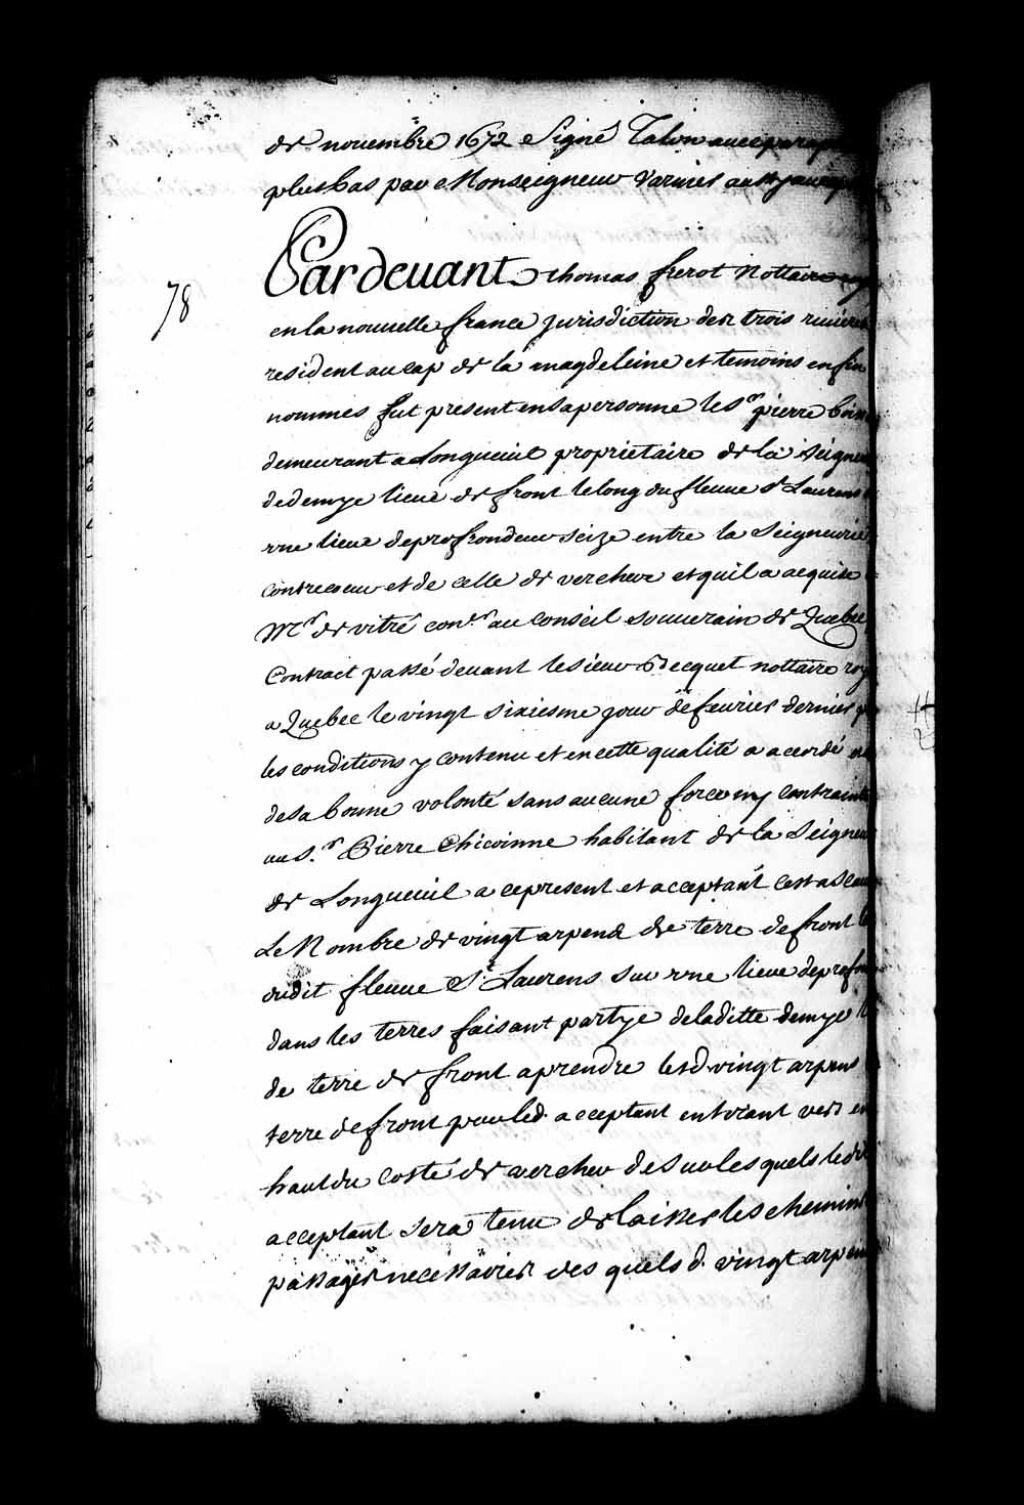 de novembre 1672 Signé Talon avec paraphe
plus bas par Monseigneur Varnier
78
Pardevant Thomas frerot Nottaire
en la nouvelle france Jurisdiction des trois rivieres
resident au cap de la magdeleine et temoins en fin
nommes fut present en sa personne le Sr pierre
demeurant a Longueuil proprietaire de la Seigneu
de demye lieue de front le long du fleuve St Laurens
une lieue de profrondeur seize entre la Seigneurie
Contrecoeur et de celle de verchere et quil a acquise
Mr de vitré conr au Conseil souverain de Quebec
Contract passé devant le sieur Becquet nottaire roy
a Quebec le vingt sixiesme jour de fevrier dernier
les conditions y contenu et en cette qualité a accordé
de sa bonne volonté sans aucune force ny contrainte
au S.r Pierre Chicoinne habitant de la Seigneu
de Longueuil a ce present et acceptant cest a scav
Le Nombre de vingt arpend de terre de front
dudit fleuve St Laurens sur une lieue de profon
dans les terres faisant partye de laditte demye
de terre de front a prendre lesd vingt arpens
terre de front pour led. acceptant en tirant vers en
haut du costé de vercher desur les quels ledit
acceptant sera tenu de laisser les chemins
passages necessaires des quels d. vingt arpens